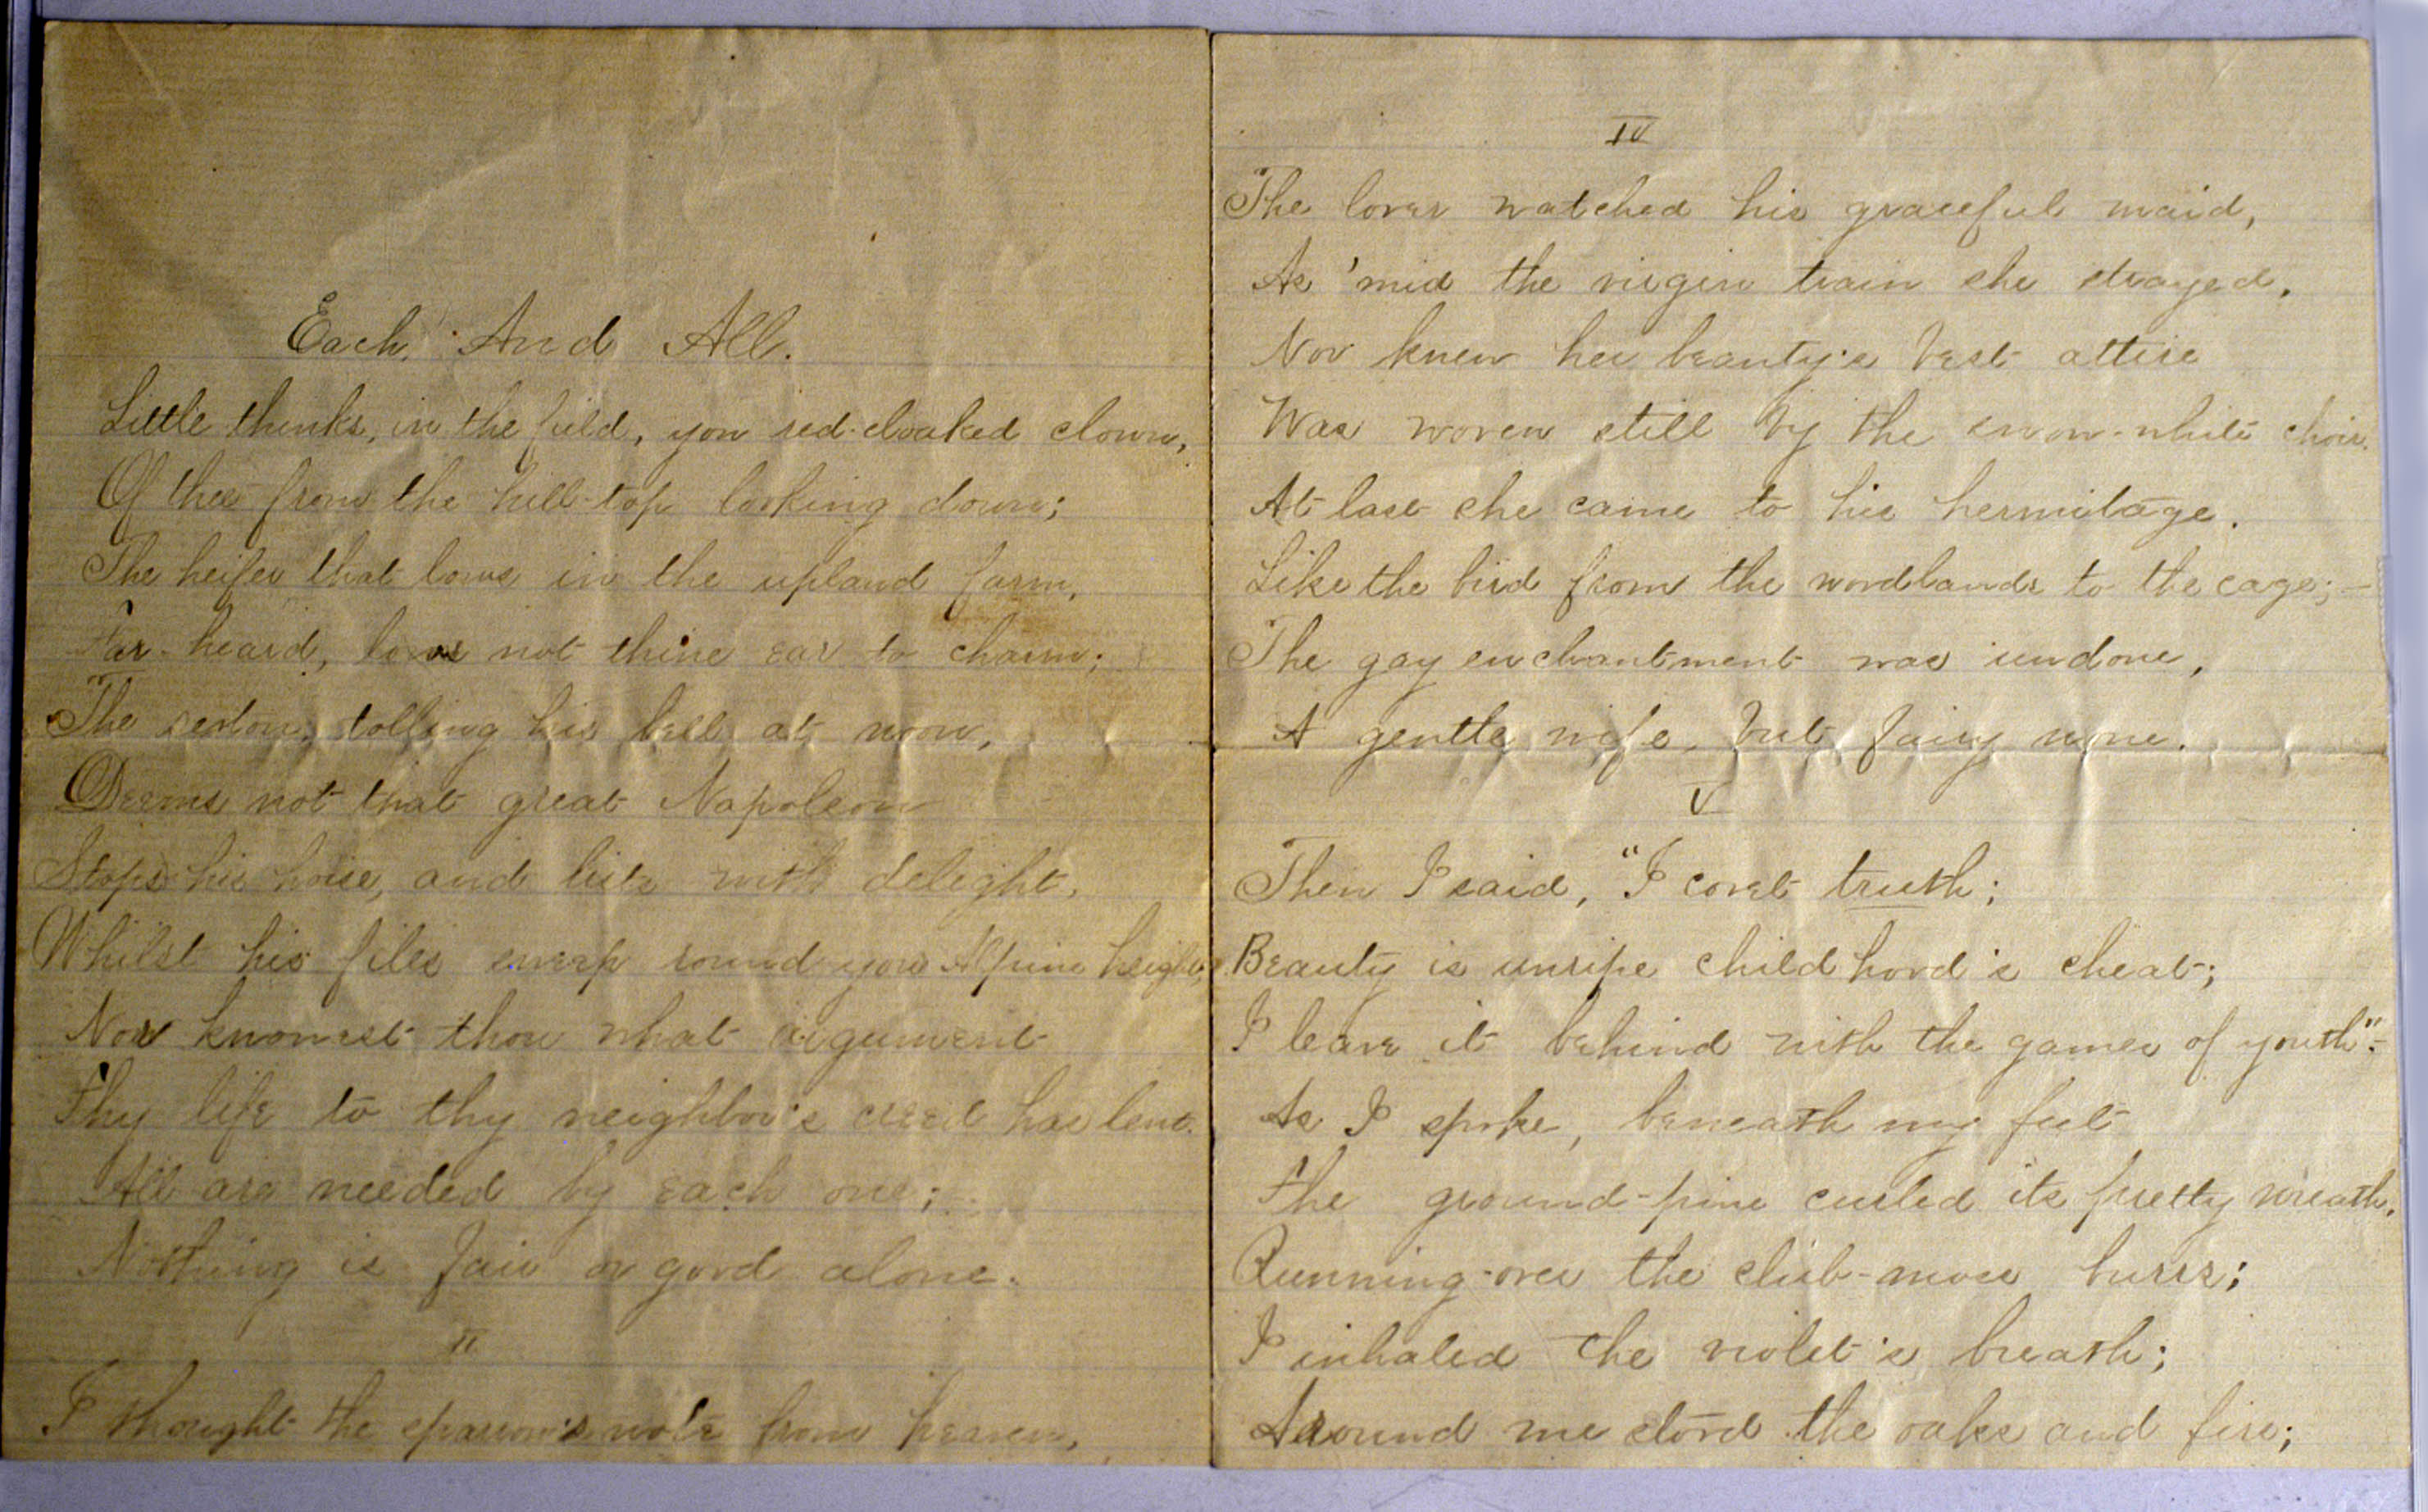 Each And All.
Little thinks, in the field, yon red-cloaked clown,
Of thee from the hill-top looking down;
The heifer that lows in the upland farm,
Far-heard, lows not thine ear to charm;
The sexton, tolling his bell at noon,
Deems not that great Napoleon
Stops his horse, and lists with delight,
Whilst his files sweep round yon Alpine height;
Nor knowest thou what argument
Thy life to thy neighbor's creed has lent.
All are needed by each one;
Nothing is fair or good alone.
II
I thought the sparrow's note from heaven,
IV
The lover watched his graceful maid,
As 'mid the virgin train she strayed,
Nor knew her beauty's best attire
Was woven still by the snow-white choir.
At last she came to his hermitage,
Like the bird from the woodlands to the cage;—
The gay enchantment was undone,
A gentle wife, but fairy none.
V
Then I said, "I covet truth;
Beauty is unripe childhood's cheat;
I leave it behind with the games of youth".—
As I spoke, beneath my feet
The ground-pine curled its pretty wreath,
Running over the club-moss burrs;
I inhaled the violet's breath;
Around me stood the oaks and firs;